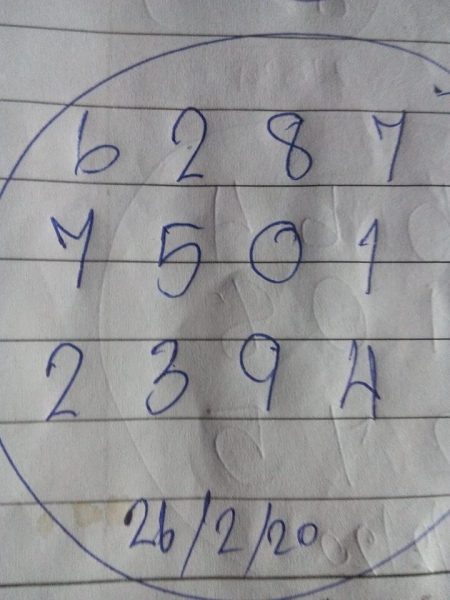 6 2 8 7
7 5 0 1
2 3 9 4
26/2/20